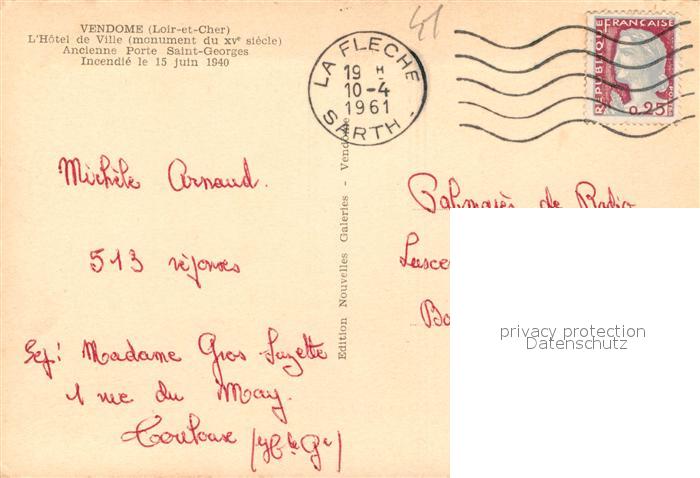 VENDOME (Loir-et-Cher)
L'Hôtel de Ville (monument du XVe siècle)
Ancienne Porte Saint-Georges
Incendié le 15 juin 1940
41
LA FLECHE
19 H
10-4
1961
SARTH.
REPUBLIQUE FRANCAISE
0,25
Michèle Arnaud.
513 réponses
Exp: Madame Gros Suzette
1 rue du May.
Toulouse (Hte Gne)
Edition Nouvelles Galeries - Vendome
Palmarès de Radio
privacy protection
Datenschutz